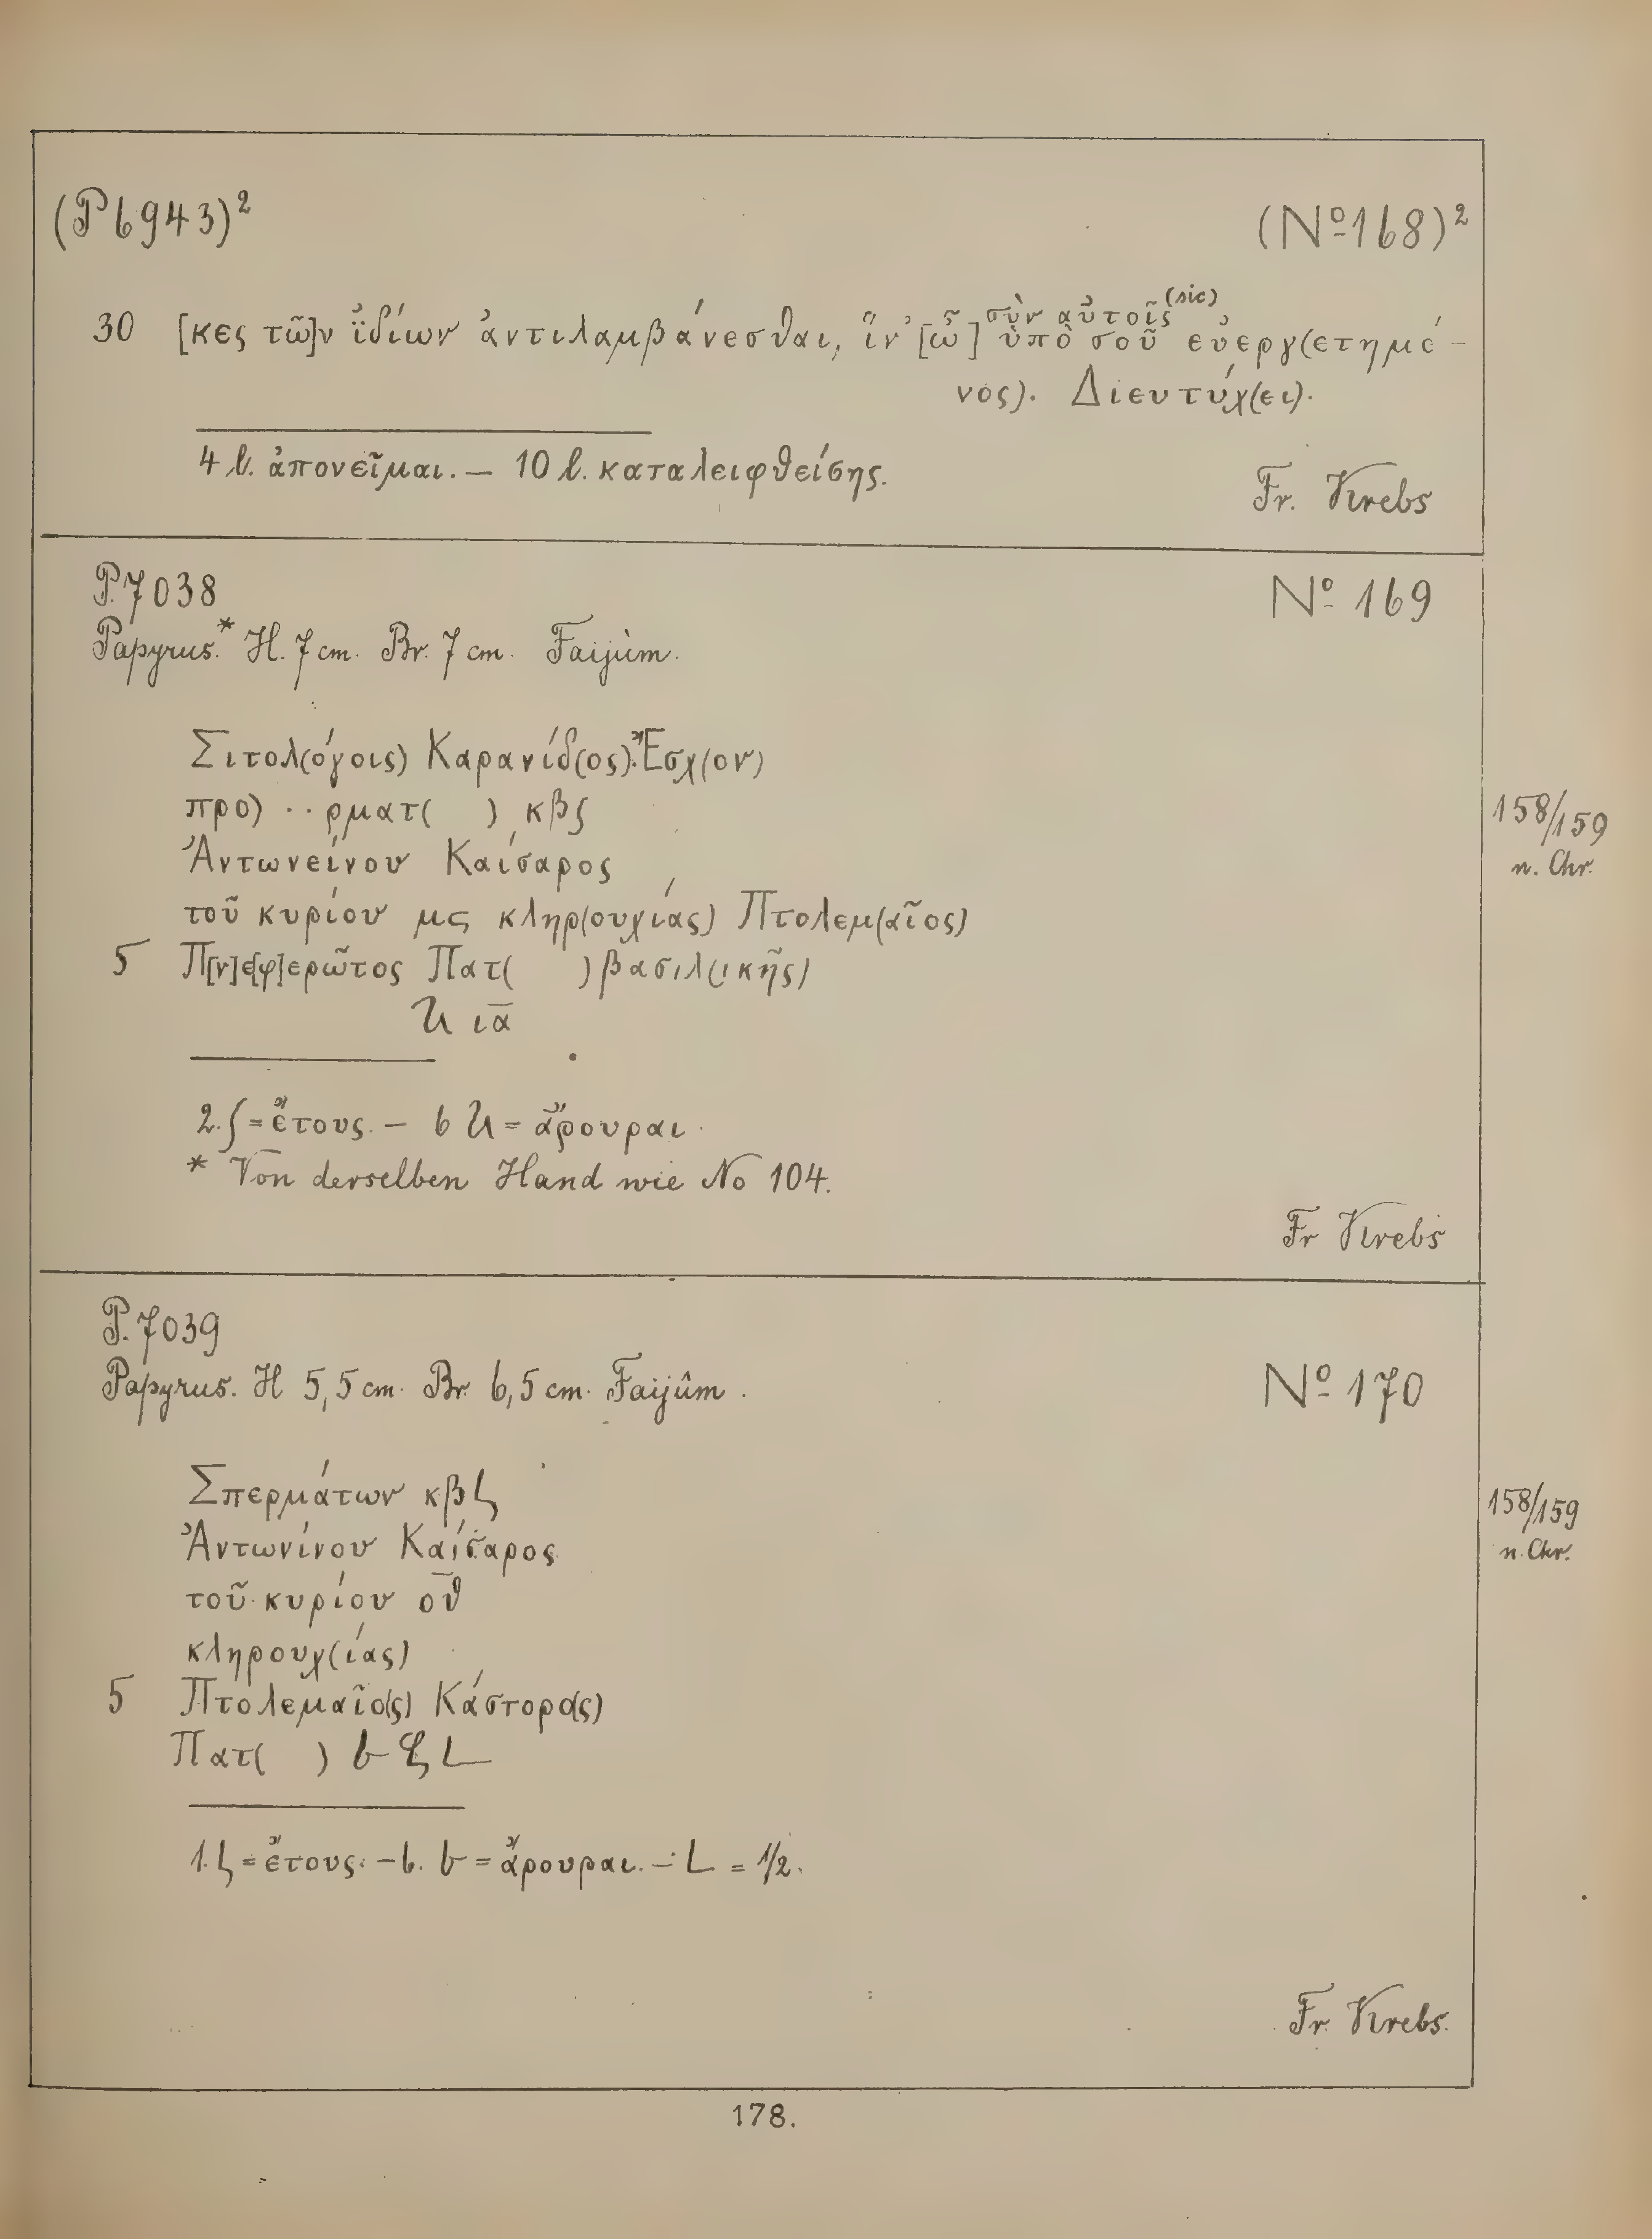 (P 6943)² (Nº 168)²
σὺν αὐτοῖς (sic)
30 [κες τῶ]ν ἰ̈δίων ἀντιλαμβάνεσθαι, ἵν' [ὦ] ὑπὸ σοῦ εὐεργ(ετημέ-
νος). Διευτύχ(ει).
4 l. ἀπονεῖμαι. — 10 l. καταλειφθείσης.
Fr. Krebs
P. 7038 Nº 169
Papyrus.* H. 7 cm. Br. 7 cm. Faijûm.
Σιτολ(όγοις) Καρανίδ(ος). Ἔσχ(ον)
προ) ·· ρματ( ) κβʃ
Ἀντωνείνου Καίσαρος
τοῦ κυρίου μς κληρ(ουχίας) Πτολεμ(αῖος)
5 Π[ν]ε[φ]ερῶτος Πατ( ) βασιλ(ικῆς)
ια̅
158/159
n. Chr.
2. ʃ = ἔτους. — 6 = ἄρουραι.
* Von derselben Hand wie No 104.
Fr Krebs
P. 7039
Papyrus. H 5,5 cm. Br. 6,5 cm. Faijûm. Nº 170
Σπερμάτων κβ
Ἀντωνίνου Καίσαρος
τοῦ κυρίου ο̅θ̅
κληρουχ(ίας)
5 Πτολεμαῖο(ς) Κάστορο(ς)
Πατ( )
158/159
n. Chr.
1. = ἔτους. — 6. = ἄρουραι. — L = 1/2.
Fr. Krebs.
178.